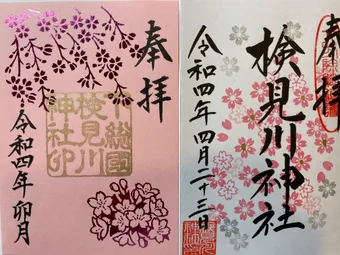 奉拝
下総國
検見川
神社印
令和四年 卯月
奉拝
検見川神社
令和四年四月二十三日